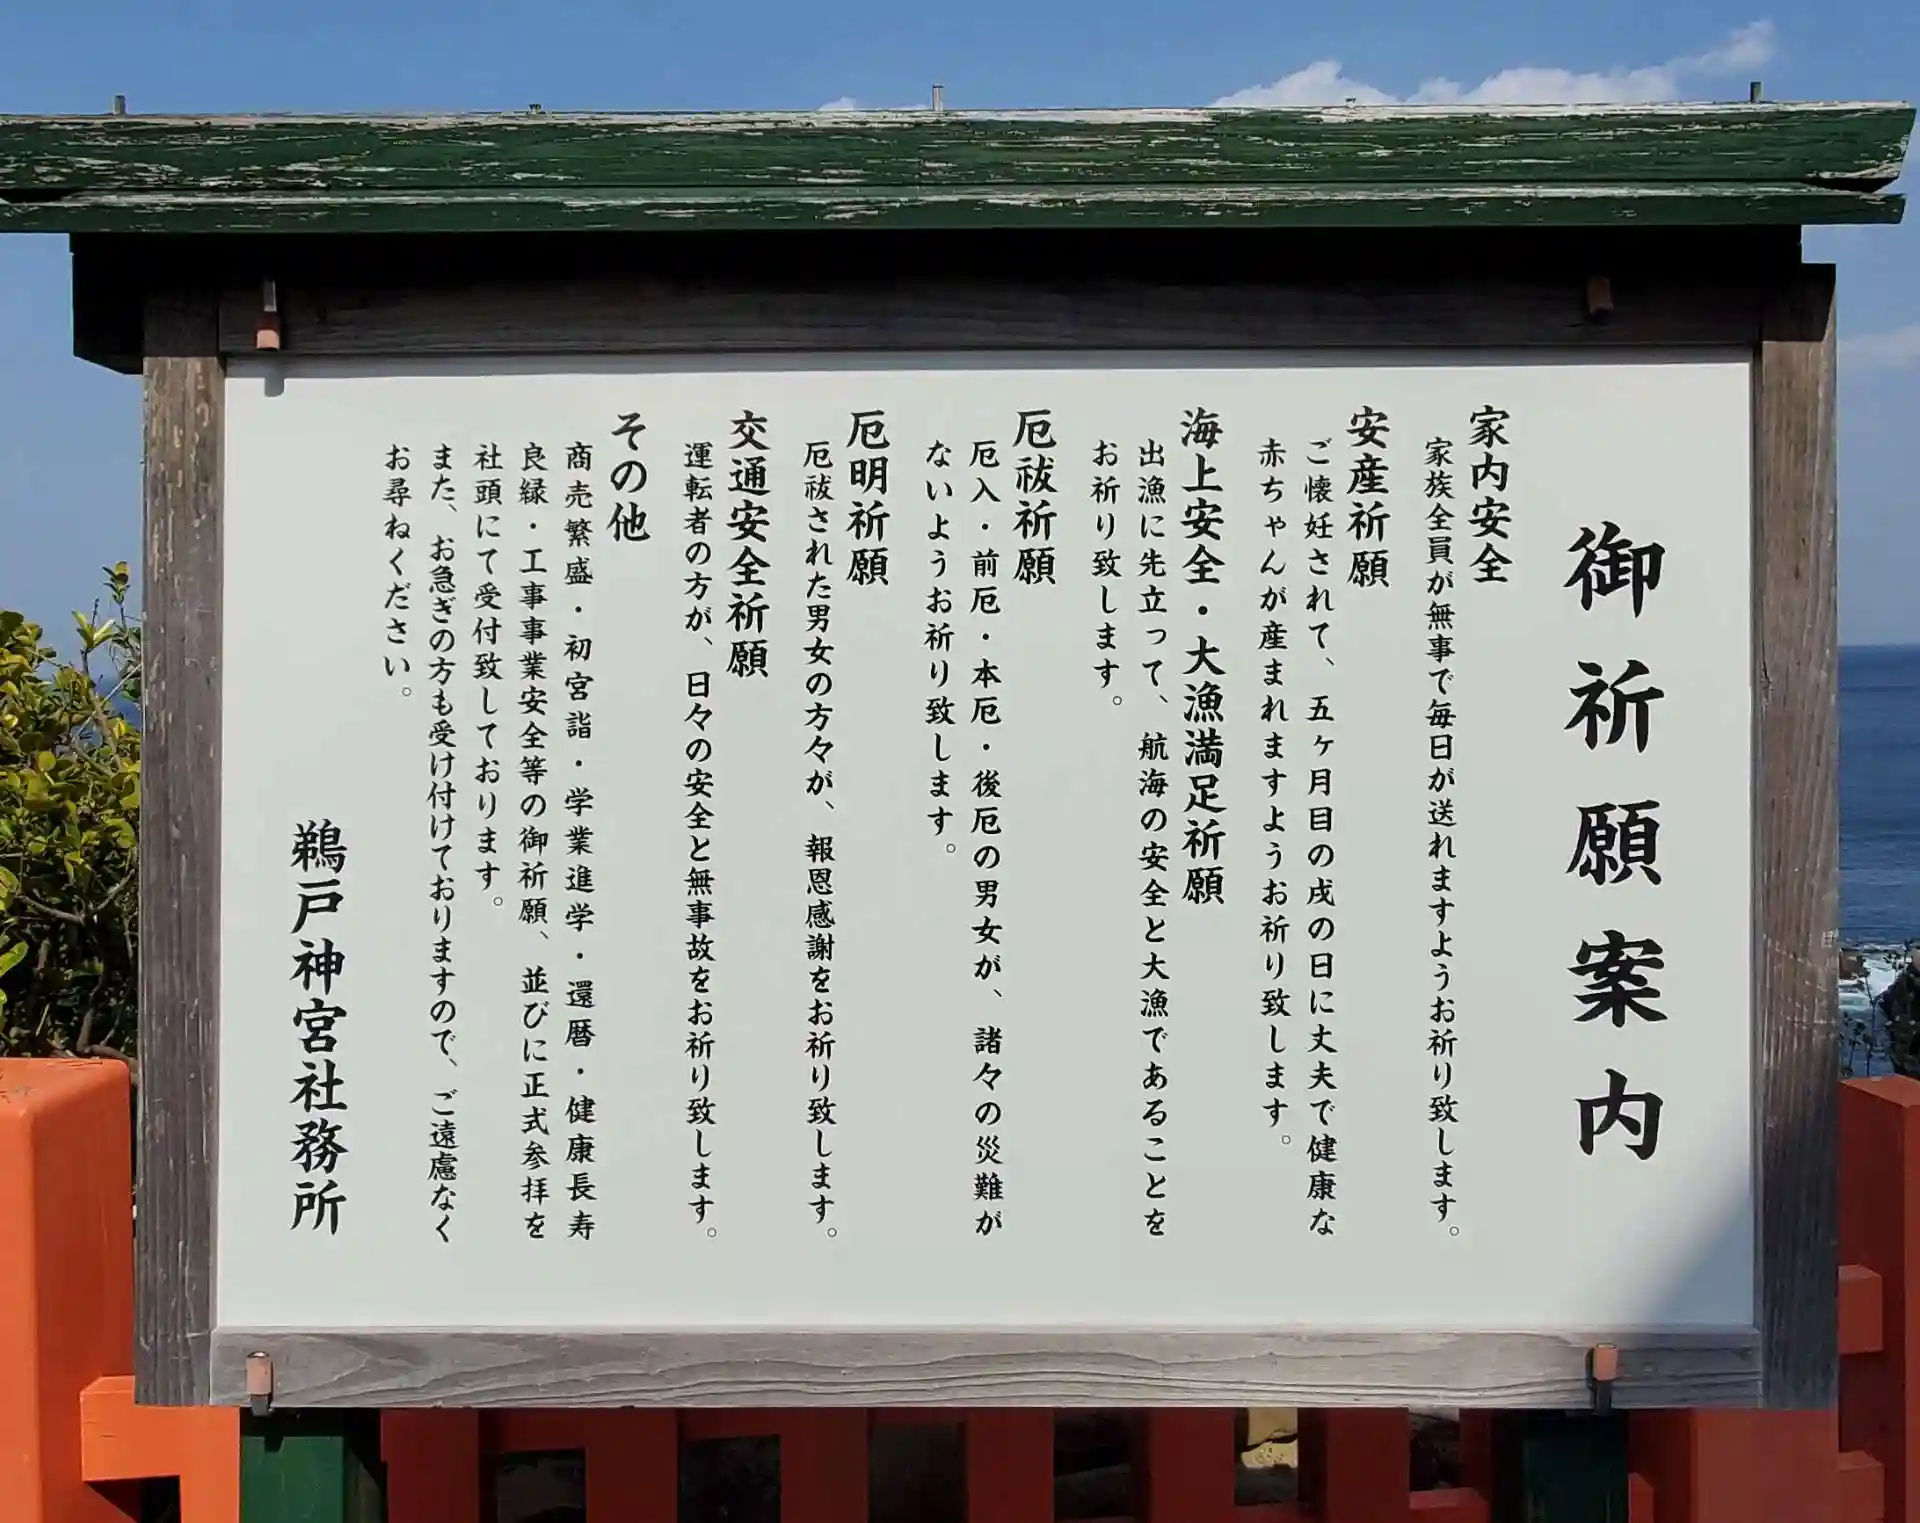 御祈願案内
家内安全
家族全員が無事で毎日が送れますようお祈り致します。
安産祈願
ご懐妊されて、五ヶ月目の戌の日に丈夫で健康な
赤ちゃんが産まれますようお祈り致します。
海上安全・大漁満足祈願
出漁に先立って、航海の安全と大漁であることを
お祈り致します。
厄祓祈願
厄入・前厄・本厄・後厄の男女が、諸々の災難が
ないようお祈り致します。
厄明祈願
厄祓された男女の方々が、報恩感謝をお祈り致します。
交通安全祈願
運転者の方が、日々の安全と無事故をお祈り致します。
その他
商売繁盛・初宮詣・学業進学・還暦・健康長寿
良縁・工事事業安全等の御祈願、並びに正式参拝を
社頭にて受付致しております。
また、お急ぎの方も受け付けておりますので、ご遠慮なく
お尋ねください。
鵜戸神宮社務所